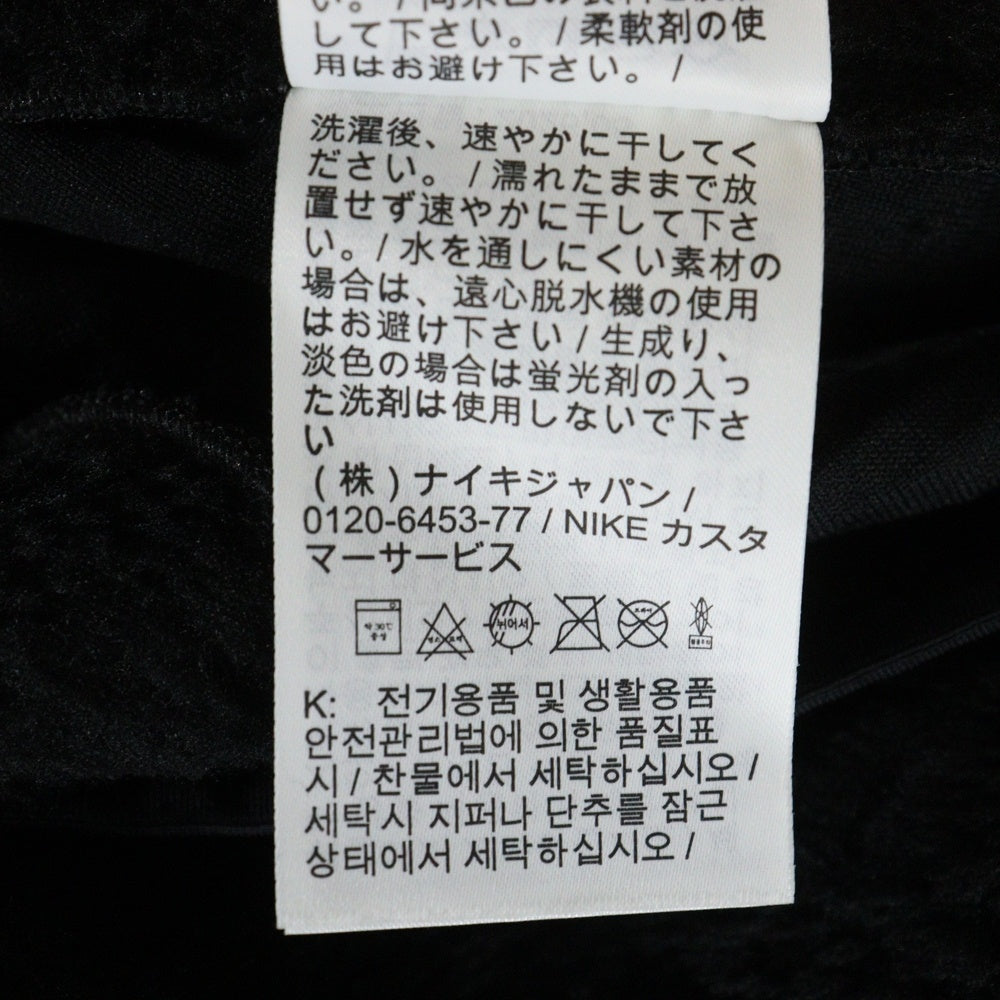 して下さい。 / 柔軟剤の使
用はお避け下さい。 /
洗濯後、速やかに干してく
ださい。 / 濡れたままで放
置せず速やかに干して下さ
い。/ 水を通しにくい素材の
場合は、遠心脱水機の使用
はお避け下さい / 生成り、
淡色の場合は蛍光剤の入っ
た洗剤は使用しないで下さ
い
(株) ナイキジャパン /
0120-6453-77 / NIKE カスタ
マーサービス
약 30℃
중성
뉘어서
K: 전기용품 및 생활용품
안전관리법에 의한 품질표
시 / 찬물에서 세탁하십시오 /
세탁시 지퍼나 단추를 잠근
상태에서 세탁하십시오 /